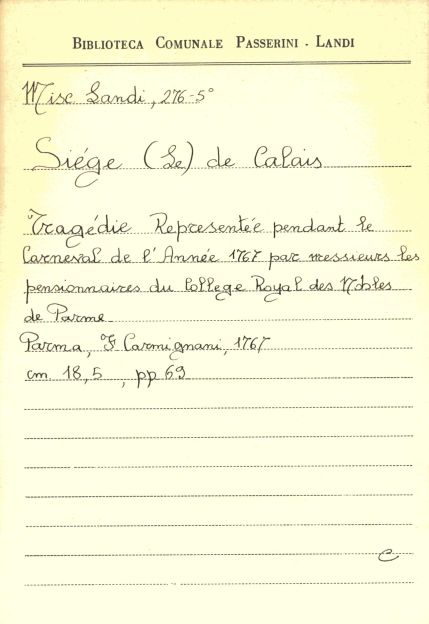 BIBLIOTECA COMUNALE PASSERINI - LANDI
Misc Landi, 276-5°
Siége (Le) de Calais
Tragédie Representée pendant le
Carneval de l'Année 1767 par messieurs les
pensionnaires du College Royal des Nobles
de Parme
Parma, F Carmignani, 1767
cm 18,5, pp 69
C